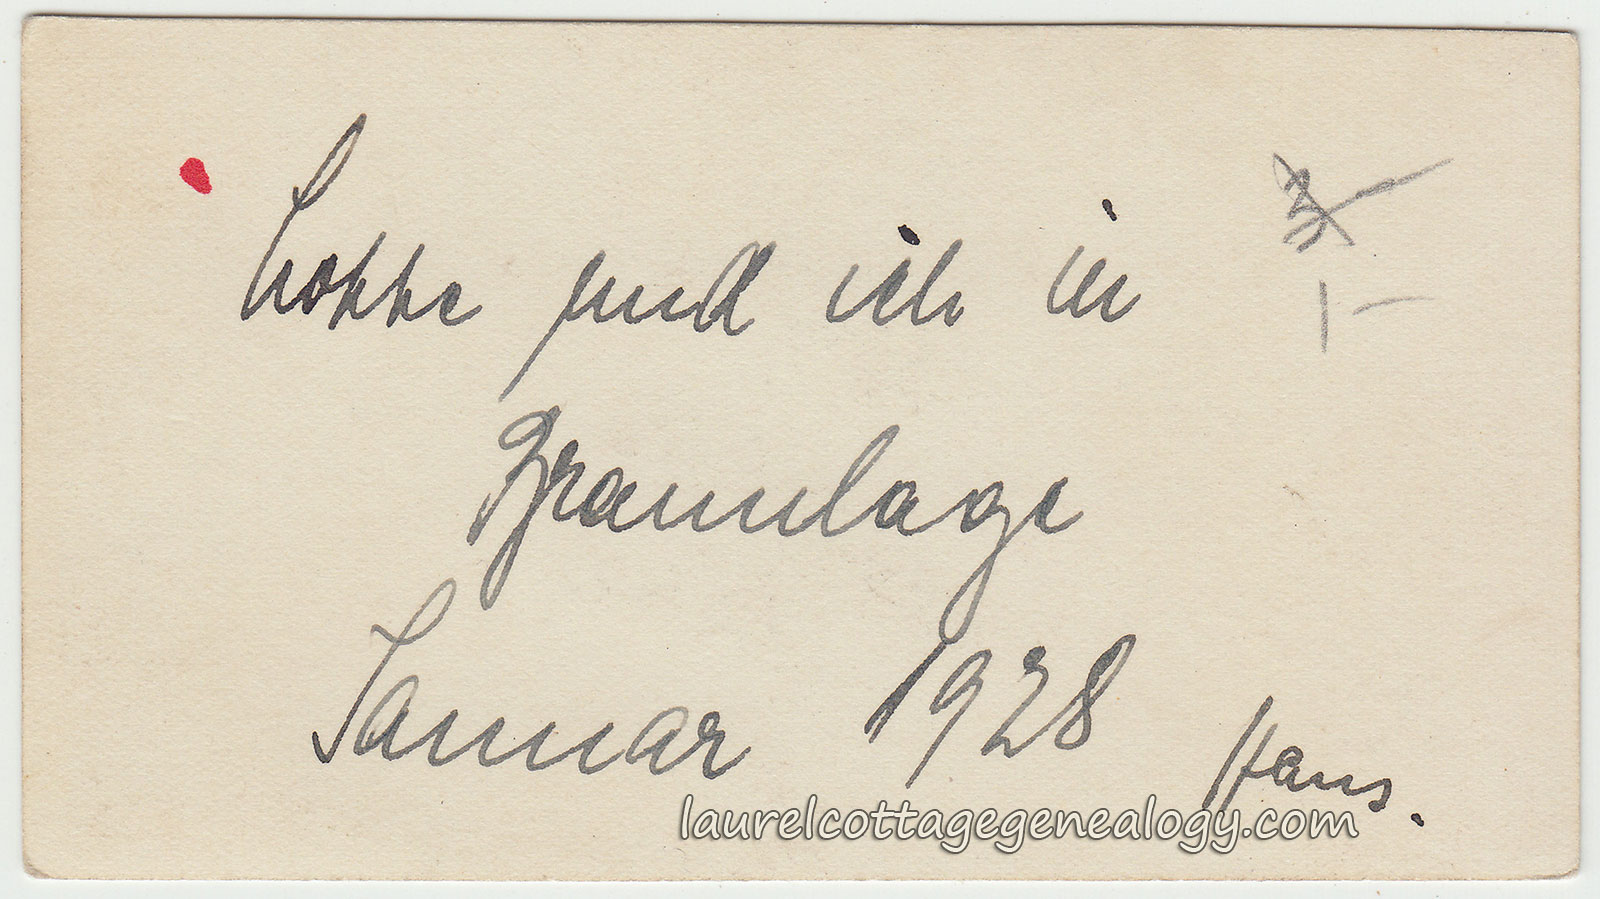 Lotte und ich in
Braunlage
Januar 1928
Hans.
laurelcottagegenealogy.com